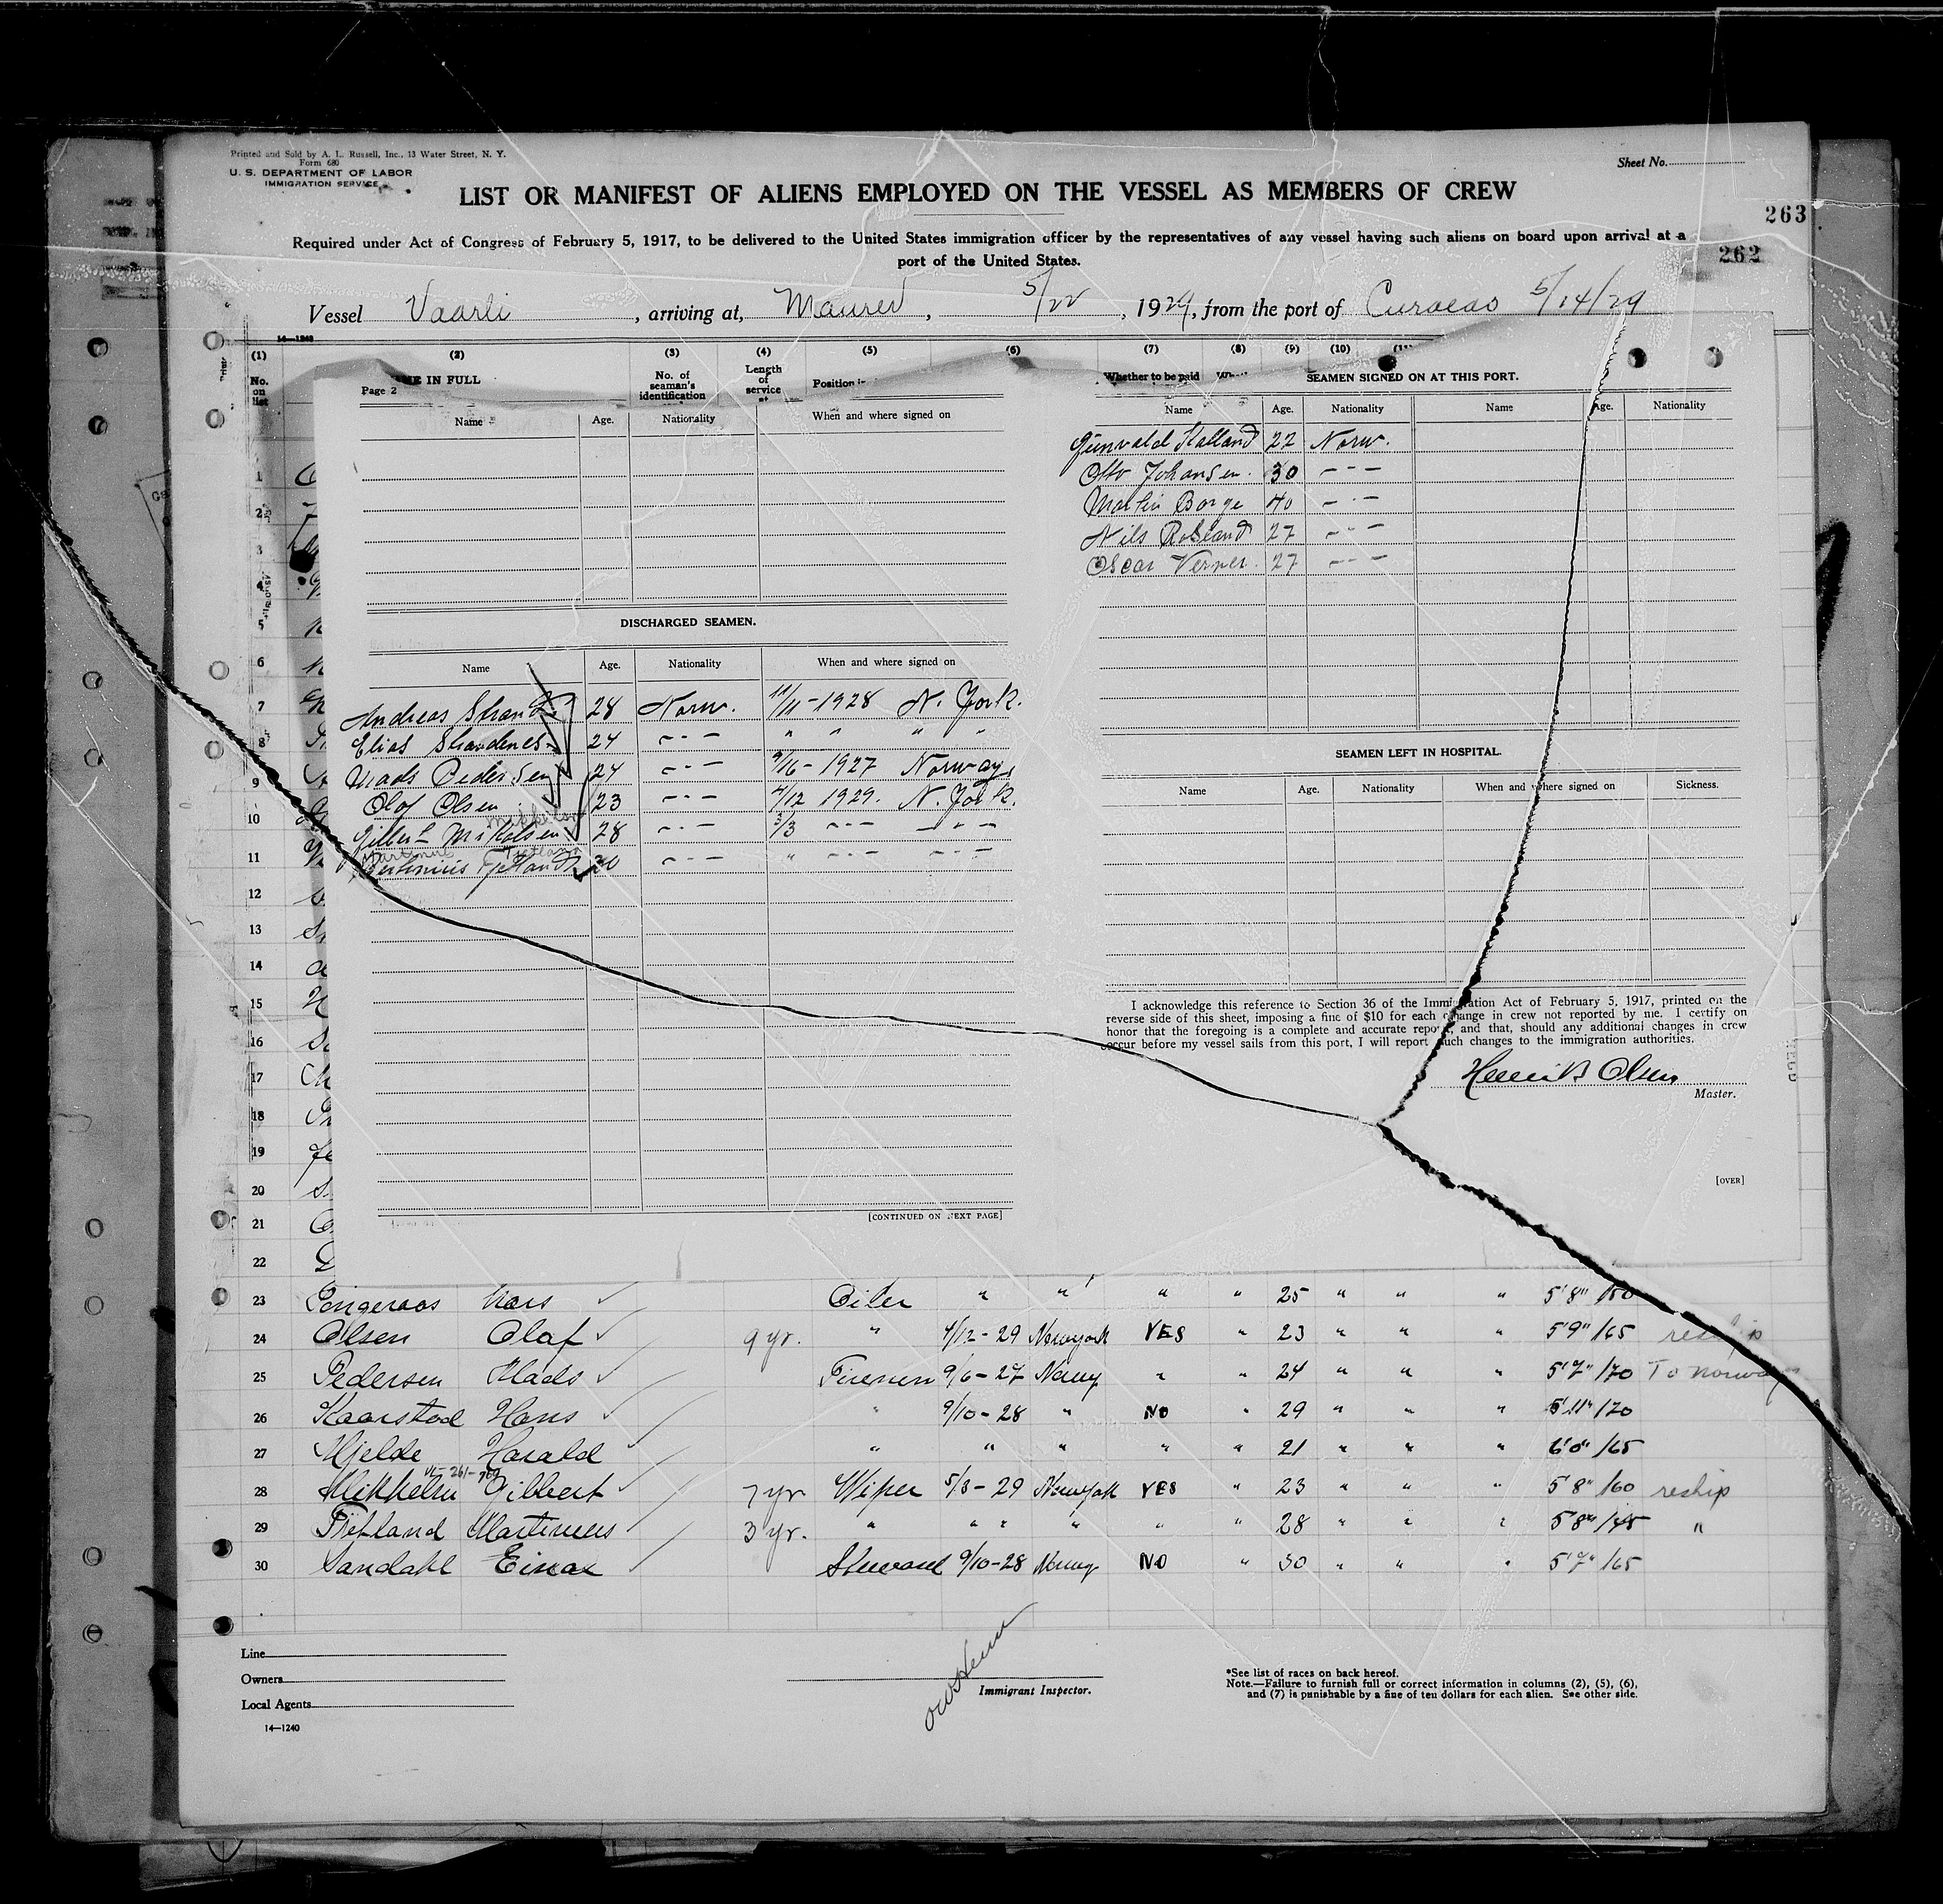 Printed and Sold by A. L. Russell, Inc., 13 Water Street, N. Y.
Form 680
U. S. DEPARTMENT OF LABOR
IMMIGRATION SERVICE
Sheet No.
LIST OR MANIFEST OF ALIENS EMPLOYED ON THE VESSEL AS MEMBERS OF CREW
263
Required under Act of Congress of February 5, 1917, to be delivered to the United States immigration officer by the representatives of any vessel having such aliens on board upon arrival at a
port of the United States.
262
Vessel Vaarli, arriving at, Maurer, 5/22, 1929, from the port of Curacao 5/14/29
14—1240
(1) (2) (3) (4) (5) (6) (7) (8) (9) (10)
No. on list
ME IN FULL
No. of seaman's identification
Length of service
Position
Whether to be paid
Page 2
Name Age. Nationality When and where signed on
DISCHARGED SEAMEN.
Name Age. Nationality When and where signed on
Andreas Strand 28 Norw. 11/11-1928 N. York.
Elias Strandenes 24 - - - " " " "
Mads Pedersen 24 - - - 9/16-1927 Norway
Olaf Olsen 23 - - - 4/12 1929. N. York.
Mikkelsen
Gilbert Mikalsen 28 - - - 3/3 - - - - - -
Martinus Fjetland
Fjetland 20 - - - " - - - - - -
[CONTINUED ON NEXT PAGE]
SEAMEN SIGNED ON AT THIS PORT.
Name Age. Nationality Name Age. Nationality
Gunvald Stalland 22 Norw.
Otto Johansen. 30 - - -
Martin Borge 40 - - -
Nils Rosland 27 - - -
Oscar Verner. 27 - - -
SEAMEN LEFT IN HOSPITAL.
Name Age. Nationality When and where signed on Sickness.
I acknowledge this reference to Section 36 of the Immigration Act of February 5, 1917, printed on the
reverse side of this sheet, imposing a fine of $10 for each change in crew not reported by me. I certify on
honor that the foregoing is a complete and accurate report, and that, should any additional changes in crew
occur before my vessel sails from this port, I will report such changes to the immigration authorities.
Henrik Olsen
Master.
[OVER]
1
2
3
4
5
6
7
8
9
10
11
12
13
14
15
16
17
18
19
20
21
22
23 Lars Oiler " " " " 25 " " " 5'8" 150
24 Olsen Olaf 9 yr. " 4/12-29 Newyork YES " 23 " " " 5'9" 165 reship
25 Pedersen Mads Firemen 9/6-27 Norwy " " 24 " " " 5'7" 170 To norway
26 Kaarstad Hans " 9/10-28 " NO " 29 " " " 5'11" 170
27 Hjelde Harald " " " " " 21 " " " 6'0" 165
28 Mikkelsen Gilbert 7 yr Wiper 5/3-29 Newyork YES " 23 " " " 5'8" 160 reship
29 Fjetland Martinus 3 yr. " " " " " " 28 " " " 5'8" "
30 Sandahl Einar Steward 9/10-28 Norwy NO " 30 " " " 5'7" 165
Line
Owners
Local Agents
14—1240
Immigrant Inspector.
*See list of races on back hereof.
Note.—Failure to furnish full or correct information in columns (2), (5), (6),
and (7) is punishable by a fine of ten dollars for each alien. See other side.